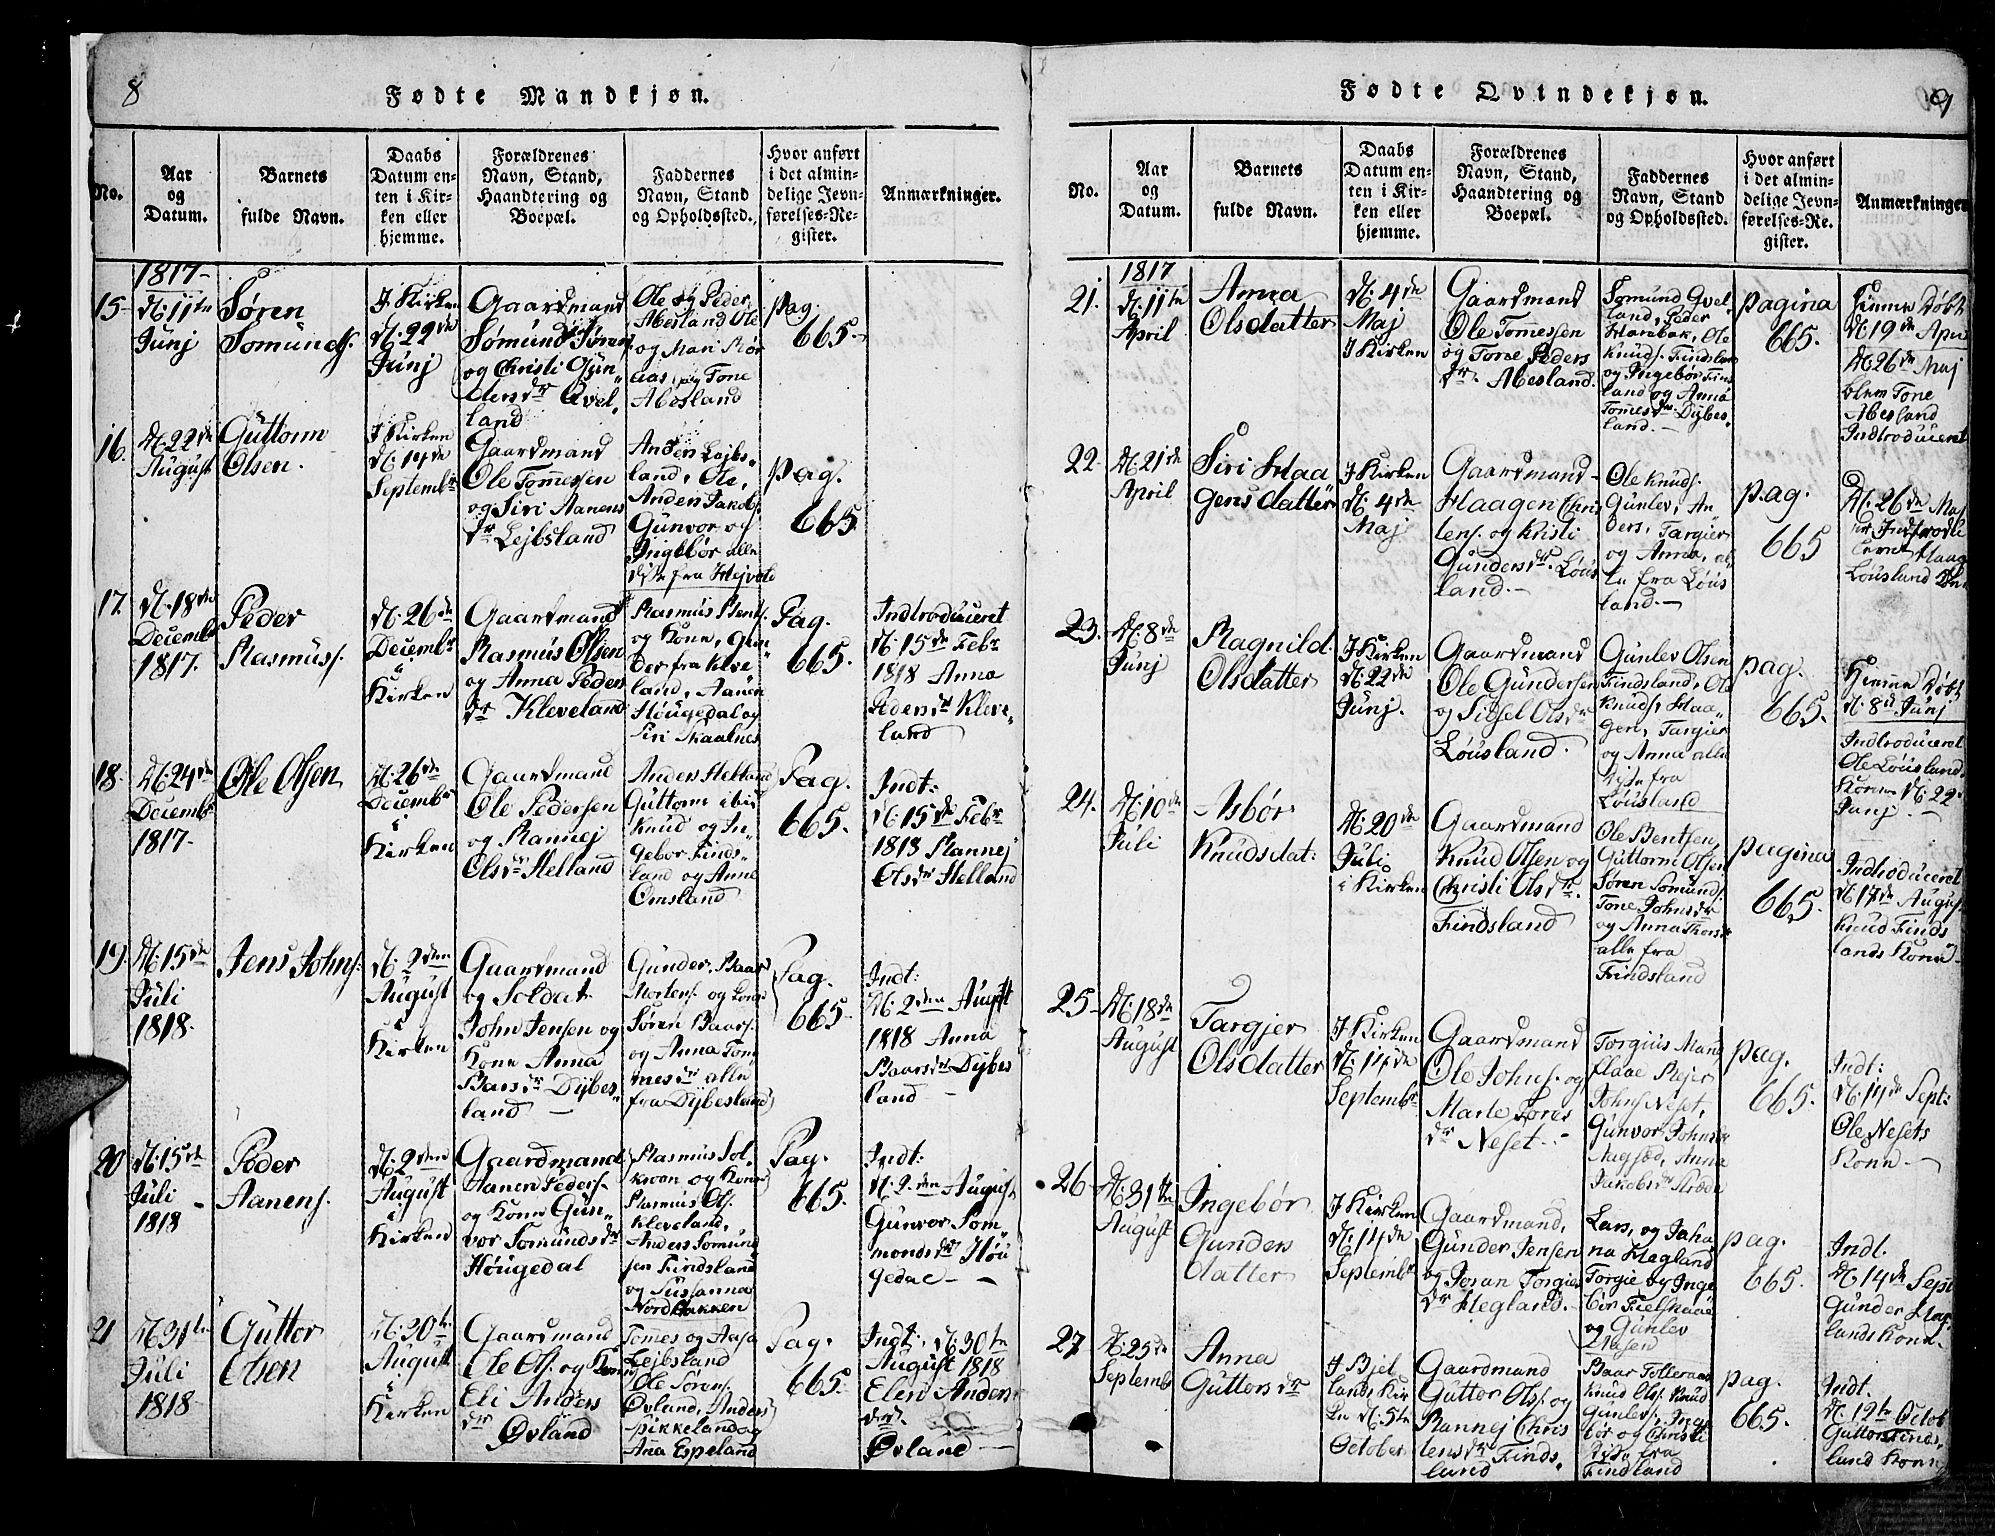 8
Fødte Mandkjøn.
No.
Aar
og
Datum.
Barnets
fulde Navn.
Daabs
Datum en-
ten i Kir-
ken eller
hjemme.
Forældrenes
Navn, Stand,
Haandtering og
Boepæl.
Faddernes
Navn, Stand
og Opholdssted.
Hvor anført
i det almin-
delige Jevn-
førelses-Re-
gister.
Anmærkninger.
1817
15
d: 11te
Junj
Søren
Somunds.
I Kirken
d: 22de
Junj
Gaardmand
Sømund Søren
og Christi Gün„
dersdr Qvel„
land
Ole og Peder
Abesland Ole
og Mari Rør
aas, og Tone
Abesland
pag.
665.
16.
d: 22de
August
Güttorm
Olsen.
I Kirken
d: 14de
Septembr
Gaardmand
Ole Tomessen
og Siri Aanens
dr Lejbsland
Anders Lejbs„
land, Ole,
Anders Jakobs
Günvor og
Ingebør alle
diste fra Hejvold
pag.
665
17.
d: 18de
Decembr
1817.
Peder
Rasmuss.
d: 26de
Decembr
i
Kirken
Gaardmand
Rasmüs Olsen
og Anna Peders
dr Kleveland
Rasmüs
og Kone, Gün„
der fra Kleve
land, Aanen
Höugedal og
Siri Skaalnes
Pag.
665.
Indtroduceret
d: 15de Febr
1818 Anna
Pedersdr Kleve„
land
18.
d: 24de
Decembr
1817.
Ole Olsen
d: 26de
Decembr
i
Kirken
Gaardmand
Ole Pedersen
og Rannej
Olsdr Helland
Anders Helland
Güttorm ibid
Knud og In„
gebor Finds„
land og Anne
Omsland
Pag.
665.
Indt:
d: 15de Febr
1818 Rannej
Olsdr Helland
19.
d: 15de
Juli
1818.
Jens Johns:
d: 2den
August
i
Kirken
Gaardmand
og Soldat
John Jensen og
Kone Anna
Barsdr Dÿbes„
land
Günder, Baar
Mortens. og Kone
Søren Baars.
og Anna Tom
mesdr alle
fra Dÿbesland
Pag.
665.
Indt:
d: 2den August
1818 Anna
Baarsdr Dÿbes
land
20
d: 15de
Juli
1818
Peder
Aanens.
d: 2den
August
i
Kirken
Gaardmand
Aanen Peders.
og Kone Gün„
vor Somündsdr
Höugedal
Rasmus Sol„
kvan og Kone
Rasmus Ols.
Kleveland,
Anders Somund
sen Findsland
og Susanna
Nordbakken
Pag.
665.
Indt:
d: 2den August
Günvor Som
mondsdr Höü
gedal
21
d: 31te
Juli
1818
Gütter
Olsen
d: 30te
August
i
Kirken
Gaardmand
Ole Ols. og Kone
Eli Anders
dr
Øvland
Tomes og Aasa
Lejbsland
Ole Sørens.
Øvland, Anders
pikkeland og
Aña Espeland
Pag.
665.
Indt: d: 30te
August 1818
Elen Anders
dr.
Øvland
9
Fødte Qvindekjøn.
No.
Aar
og
Datum.
Barnets
fulde Navn.
Daabs
Datum en-
ten i Kir-
ken eller
hjemme.
Forældrenes
Navn, Stand,
Haandtering og
Boepæl.
Faddernes
Navn, Stand
og Opholdssted.
Hvor anført
i det almin-
delige Jevn-
førelses-Re-
gister.
Anmærkninger
1817
21.
d: 11te
April
Anna
Olsdatter
d: 4de
Maj
I Kirken
Gaardmand
Ole Tomessen
og Tone Peders
dr. Abesland.
Somund Qvel
land, Peder
Harabak, Ole
Knuds. Findsland
og Ingebør Finds
land og Anna
Tomesdr Dÿbes
land.
pagina
665.
Hiemme Døbt
d: 19de Apr
d: 26de Maj
blev Tone
Abesland
Indtroduceret
22.
d: 21de
April
Siri Haa
gensdatter
I Kirken
d: 4de
Maj
Gaardmand
Haagen Chris
tens. og Kristi
Gündersdr. Löüs
land.
Ole Knuds.
Günlev, An
ders, Targier
og Anna, al
le fra Löüs
land.
pag.
665
d: 26de Maj
er Indtrodu
ceret Haag
Löüsland
23.
d: 8de
Junj
Ragnild
Olsdatter
I Kirken
d: 22de
Junj.
Gaardmand
Ole Gündersen
og Sidsel Olsdr
Löüsland.
Günlev Olsen
Findsland, Ole
Knuds, Haa„
gen, Targier
og Anna alle
diste fra
Löüsland
pag.
665.
Hiemme Døbt
d: 8de Junj
Indtroduceret
Ole Löüslands
Kone d: 22
Junj.
24.
d: 10de
Juli
Asbør
Knudsdat:
d: 20de
Juli
i Kirken
Gaardmand
Knud Olsen og
Christi Olsdr.
Findsland
Ole Bentsen,
Güttorm Olsen
Søren Somunds
Tone Johnsdr
og Anna Thorsdr
alle fra
Findsland
pagina
665.
Indtroduceret
d: 17de August
Knud Finds
lands Kone
25.
d: 18de
August
Targjer
Olsdatter
I Kirken
d: 14de
Septembr
Gaardmand
Ole Johns. og
Marte Tores
dr Neset.
Torgius Mand
flaae Rejer
Johns Neset,
Günvor Johnsdr
Augsød, Anna
Jakobsdr Strøde
pag.
665.
Indt:
d: 14de Sept:
Ole Nesets
Kone
26.
d: 31te
August
Ingebør
Gunders
datter
I Kirken
d: 14de
Septembr
Gaardmand,
Günder Jensen
og Joran Torgies
dr Hegland.
Lars, og Joha
na Hegland
Torgie og Inge
bør Fielskaae
og Günlev
Aasen
pag.
665.
Indt.
d: 14de Sept
Günder Heg
lands Kone
27
d: 25de
Septembr
Anna
Guttorsdr
I Bjel
lands Kir
ke d: 5te
October
Gaardmand
Gutter Ols. og
Rannej Chris
tensdr Finds„
land
Baar Tolleraas
Knud Ols. Knud
Gunlevs, Inge
bør og Christi
diste fra
Findland
pag.
665.
Indt.
d: 12te Octob
Guttor Finds„
land Kone